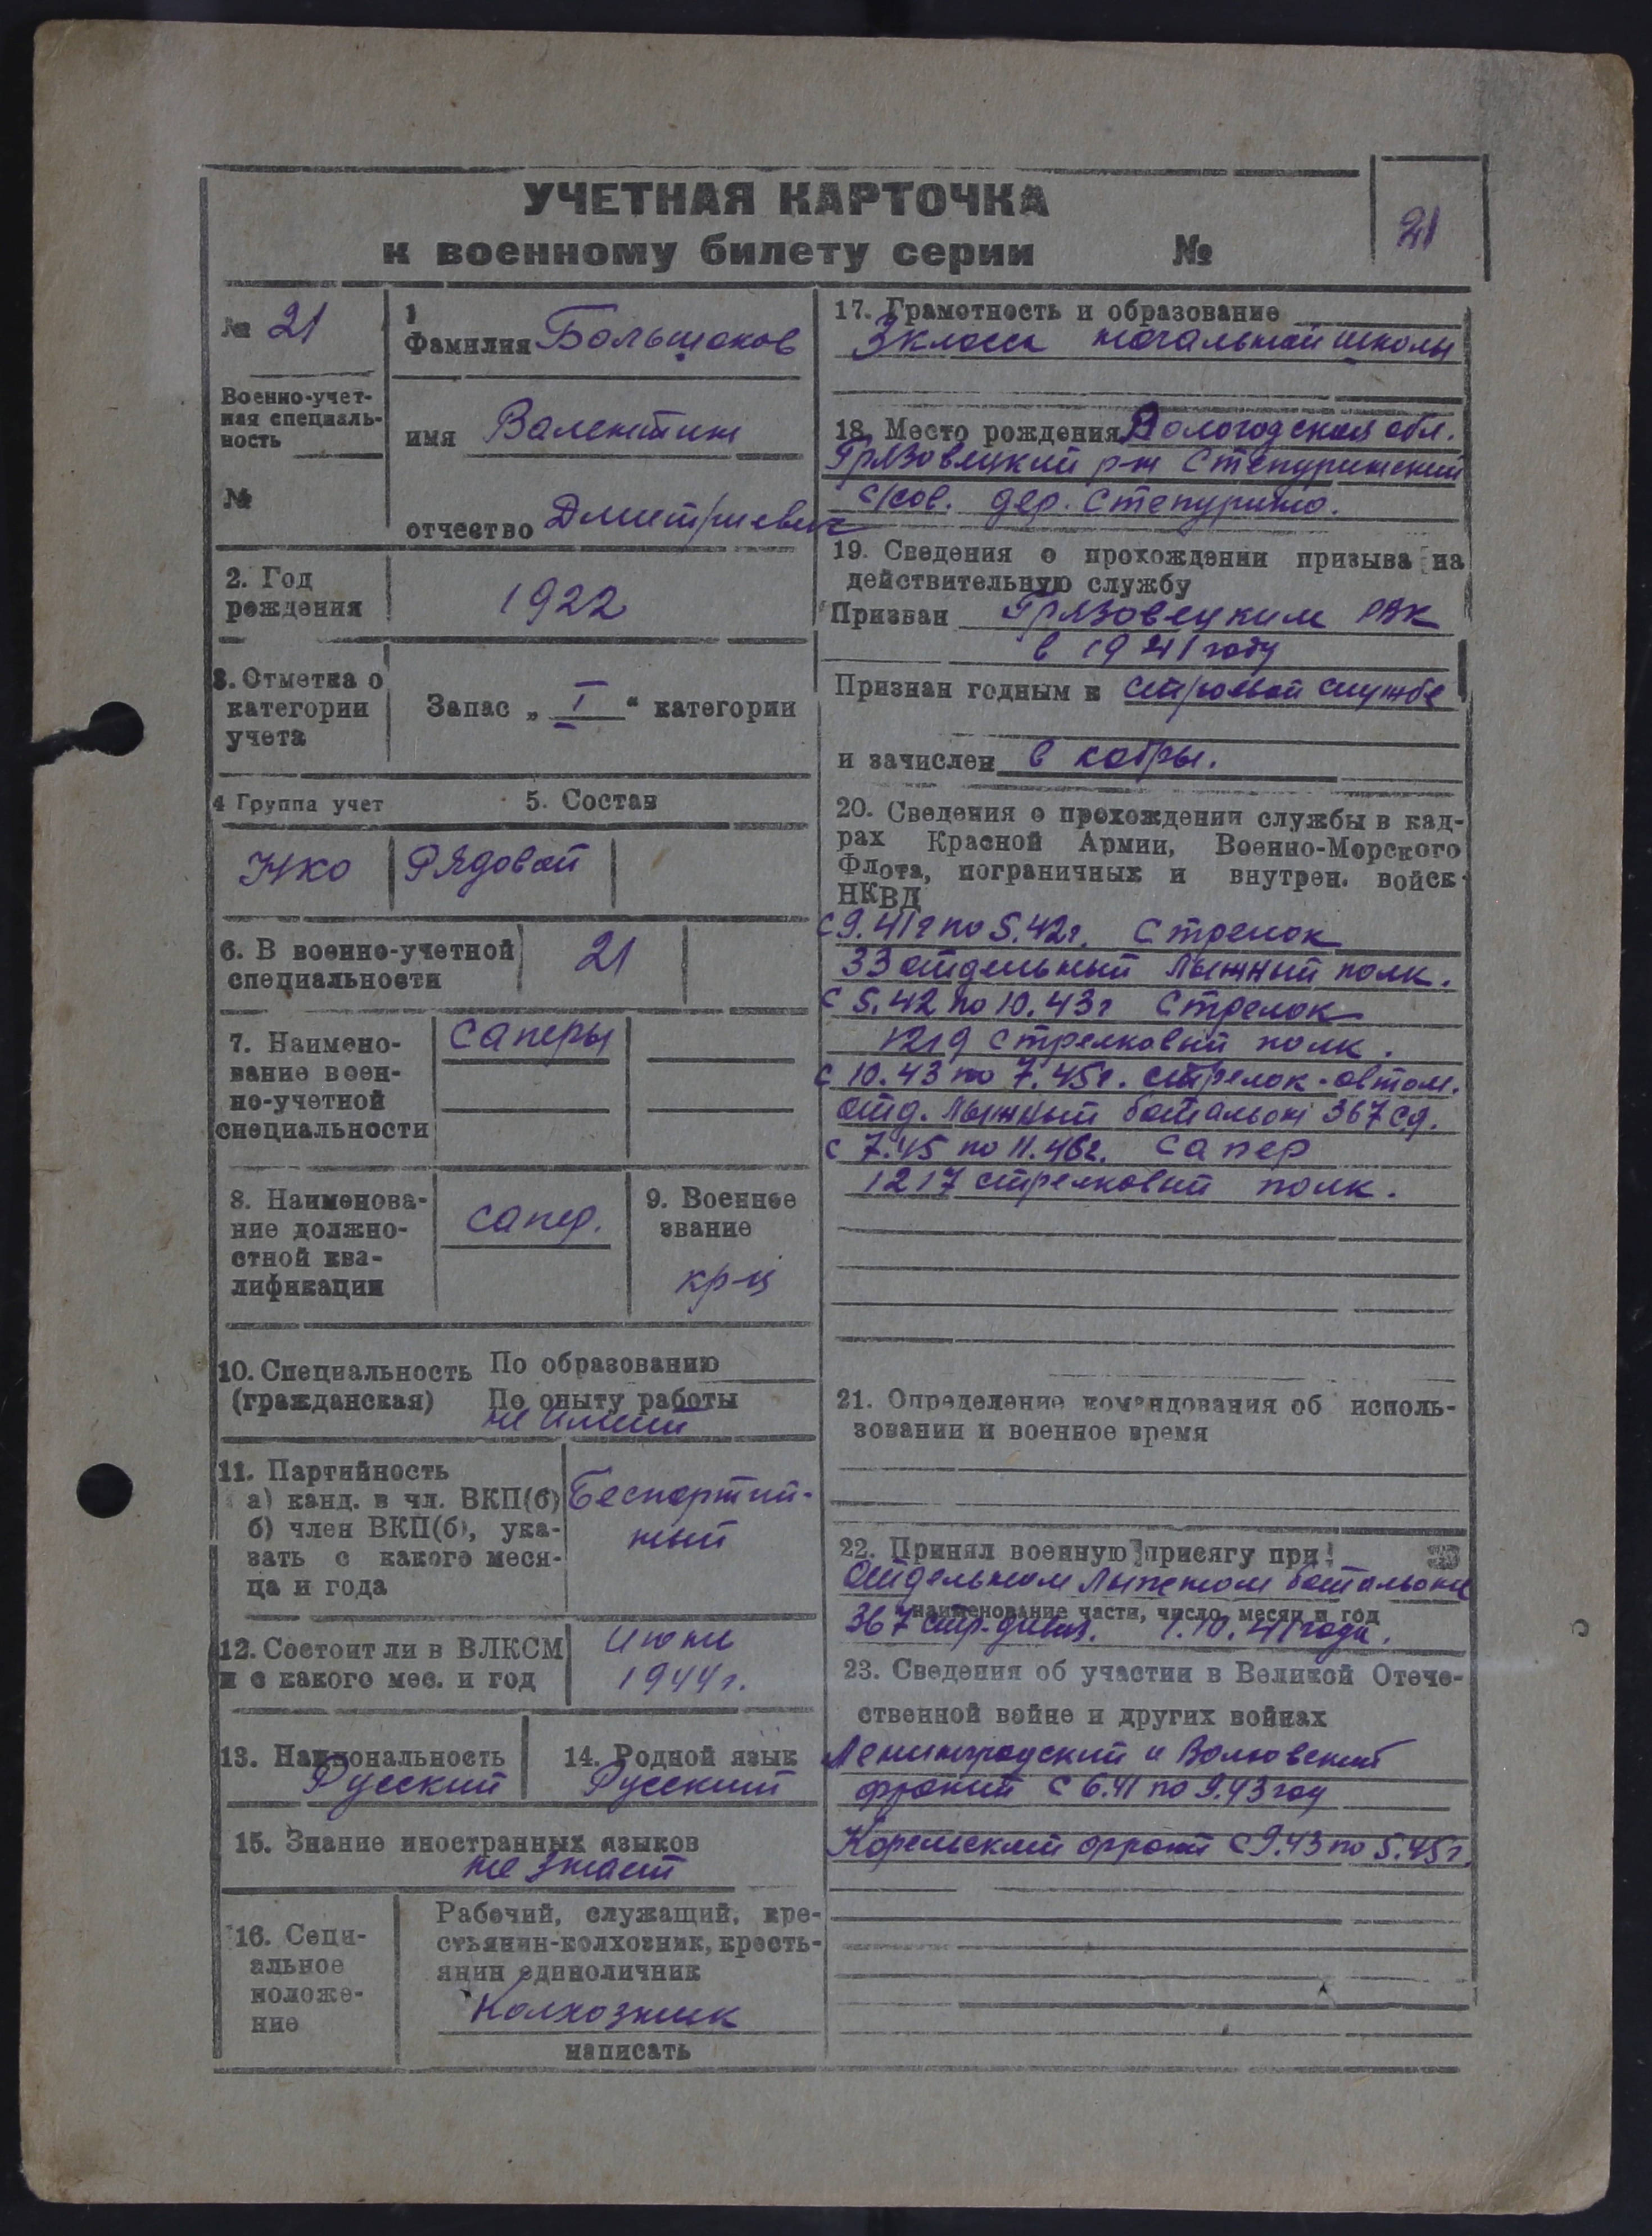 УЧЕТНАЯ КАРТОЧКА
к военному билету серии №
21
№ 21
Военно-учет-
ная специаль-
ность
№
1
Фамилия Большаков
имя Валентин
отчество Дмитриевич
2. Год
рождения
1922
3. Отметка о
категории
учета
Запас „ I “ категории
4 Группа учет
5. Состав
НКО
Рядовой
6. В военно-учетной
специальности
21
7. Наимено-
вание воен-
но-учетной
специальности
Саперы
8. Наименова-
ние должно-
стной ква-
лификации
сапер.
9. Военное
звание
кр-ц
10. Специальность
(гражданская)
По образованию
По опыту работы
не имеет
11. Партийность
а) канд. в чл. ВКП(б)
б) член ВКП(б), ука-
зать с какого меся-
ца и года
Беспартий-
ный
12. Состоит ли в ВЛКСМ
и с какого мес. и год
1944 г.
13. Национальность
Русский
14. Родной язык
Русский
15. Знание иностранных языков
не знает
16. Соци-
альное
положе-
ние
Рабочий, служащий, кре-
стьянин-колхозник, кресть-
янин единоличник
Колхозник
написать
17. Грамотность и образование
3 класса начальной школы
18. Место рождения Вологодская обл.
Грязовецкий р-н Степуринский
с/сов. дер. Степурино.
19. Сведения о прохождении призыва на
действительную службу
Призван Грязовецким РВК
в 1941 году
Признан годным к строевой службе
и зачислен в кадры.
20. Сведения о прохождении службы в кад-
рах Красной Армии, Военно-Морского
Флота, пограничных и внутрен. войск
НКВД
С 9.41г по 5.42г. Стрелок
33 отдельный лыжный полк.
С 5.42 по 10.43г Стрелок
1219 Стрелковый полк.
С 10.43 по 7.45г. стрелок-автом.
отд. лыжный батальон 367 с.д.
С 7.45 по 11.46г. Сапер
1217 стрелковый полк.
21. Определение командования об исполь-
зовании и военное время
22. Принял военную присягу при
Отдельном Лыжном батальоне
наименование части, число, месяц и год
367 стр. дивиз. 1.10.41 года.
23. Сведения об участии в Великой Отече-
ственной войне и других войнах
Ленинградский и Волховский
фронт С 6.41 по 9.43 год
Карельский фронт С 9.43 по 5.45г.